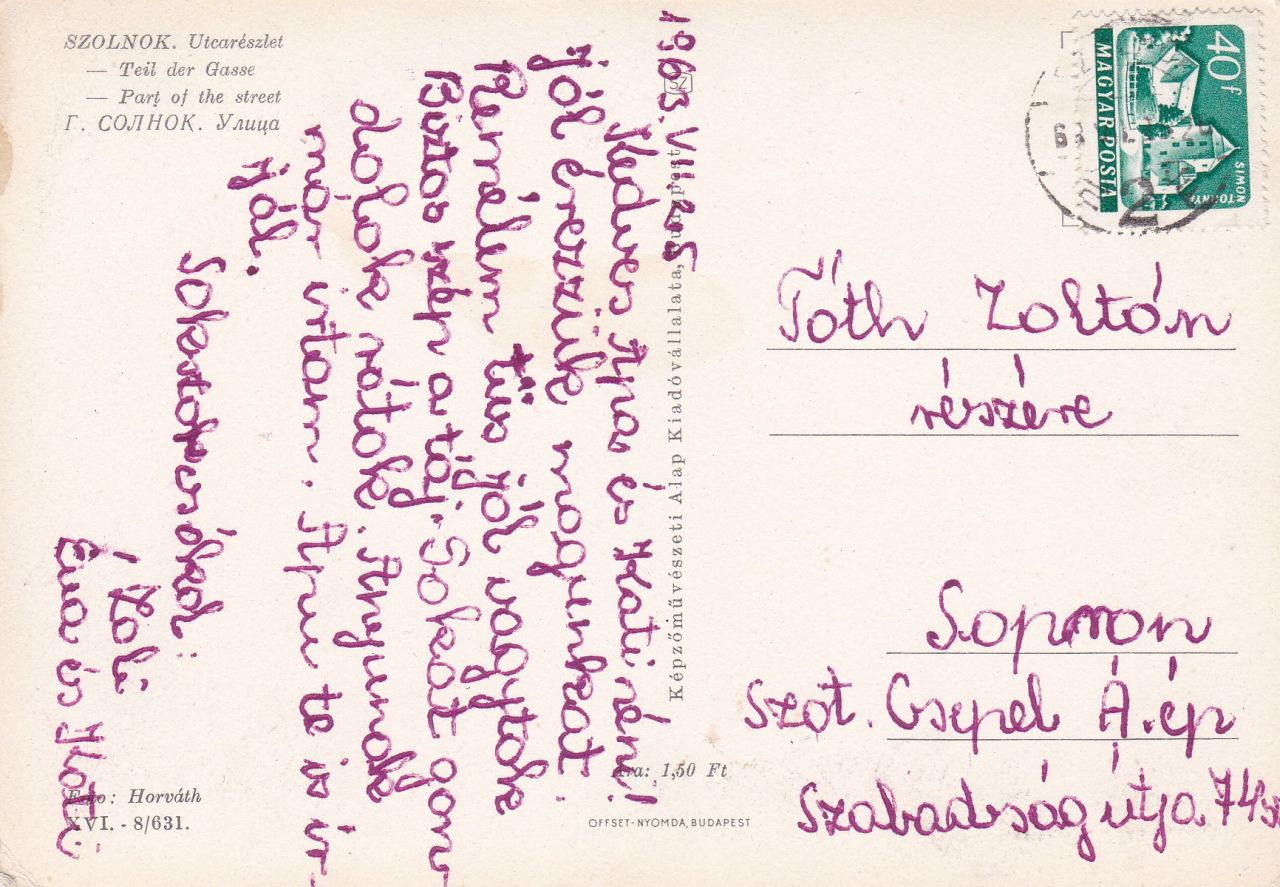 SZOLNOK. Utcarészlet
— Teil der Gasse
— Part of the street
Г. СОЛНОК. Улица
1963. VII. 25
Kedves Apa és Kati néni!
Jól érezzük magunkat.
Remélem tüs jól vagytok
Biztos szép a táj. Sokat gon
dolok rátok. Anyunak
már irtam. Apu te is ir
jál.
Sokszor csókol
Zoli
Éva és Kati
Képzőművészeti Alap Kiadóvállalata, Budapest
Ára: 1,50 Ft
Foto: Horváth
XVI. - 8/631.
OFFSET-NYOMDA, BUDAPEST
40f
MAGYAR POSTA
SIMON
TORNYA
63
2
Tóth Zoltán
részére
Sopron
Szot. Csepel Á.ép
Szabadság útja 74